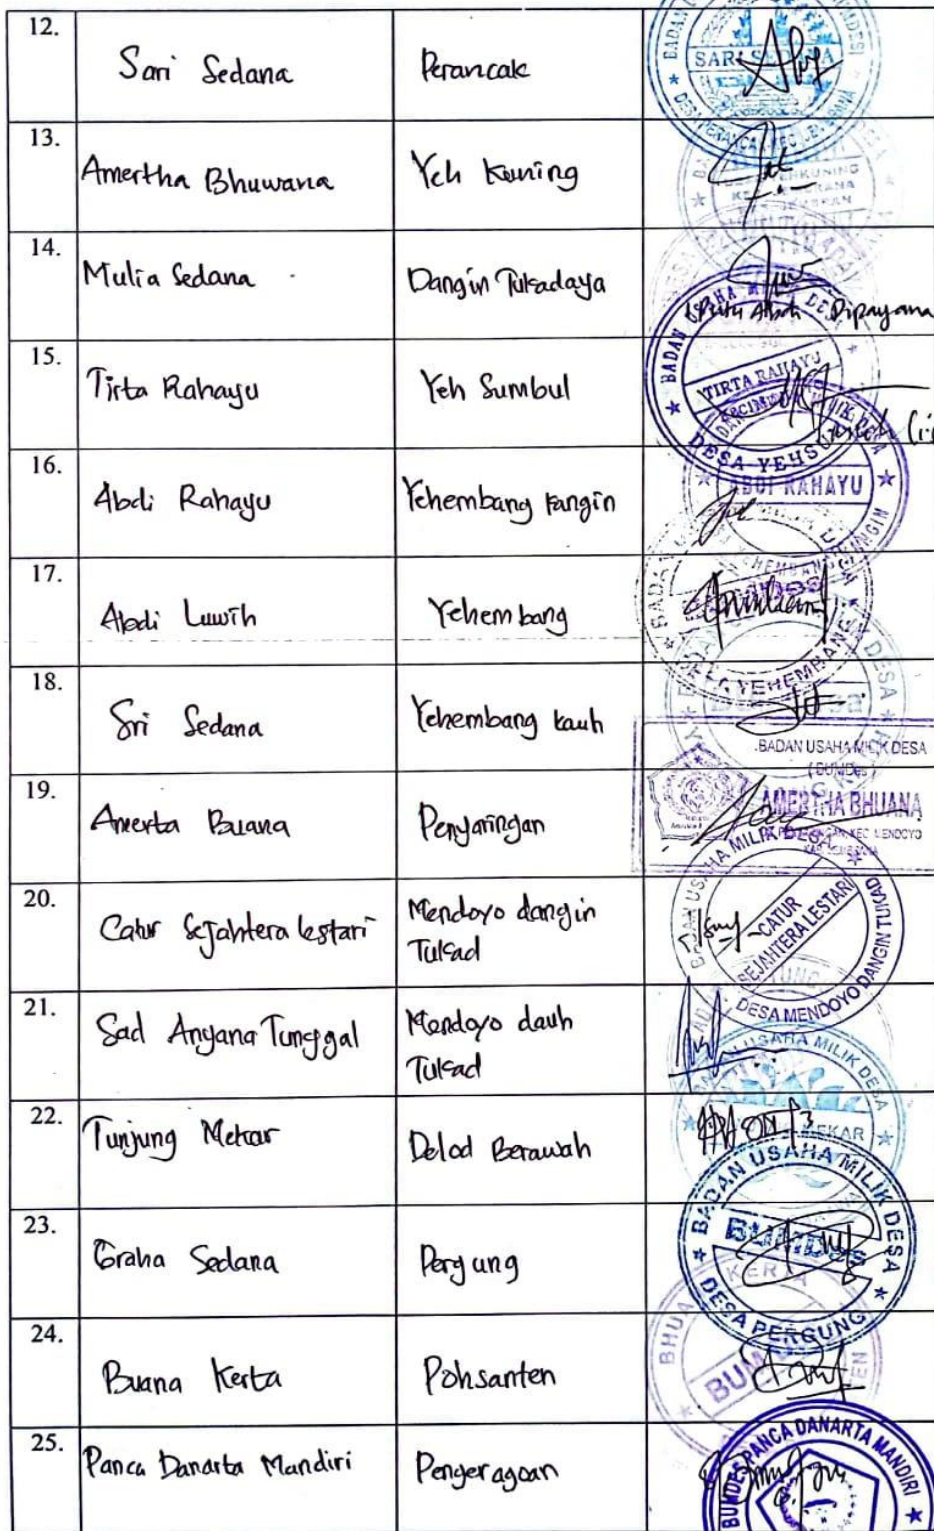 12.
Sari Sedana
Perancak
SARI SEDANA
13.
Amertha Bhuwana
Yeh Kuning
14.
Mulia Sedana
Dangin Tukadaya
Dipayana
15.
Tirta Rahayu
Yeh Sumbul
BADAN USAHA MILIK DESA
TIRTA RAHAYU
16.
Abdi Rahayu
Yehembang kangin
ABDI RAHAYU
17.
Abdi Luwih
Yehembang
YEHEMBANG
18.
Sri Sedana
Yehembang kauh
BADAN USAHA MILIK DESA
(BUMDes)
19.
Amerta Buana
Penyaringan
AMERTHA BHUANA
20.
Catur Sejahtera lestari
Mendoyo dangin
Tukad
CATUR
SEJAHTERA LESTARI
DESA MENDOYO DANGIN TUKAD
21.
Sad Anyana Tunggal
Mendoyo dauh
Tukad
USAHA MILIK DESA
22.
Tunjung Mekar
Delod Berawah
MEKAR
23.
Graha Sedana
Pergung
BADAN USAHA MILIK DESA
BUMDES
DESA PERGUNG
24.
Buana Kerta
Pohsanten
25.
Panca Danarta Mandiri
Pengeragoan
BUMDES PANCA DANARTA MANDIRI